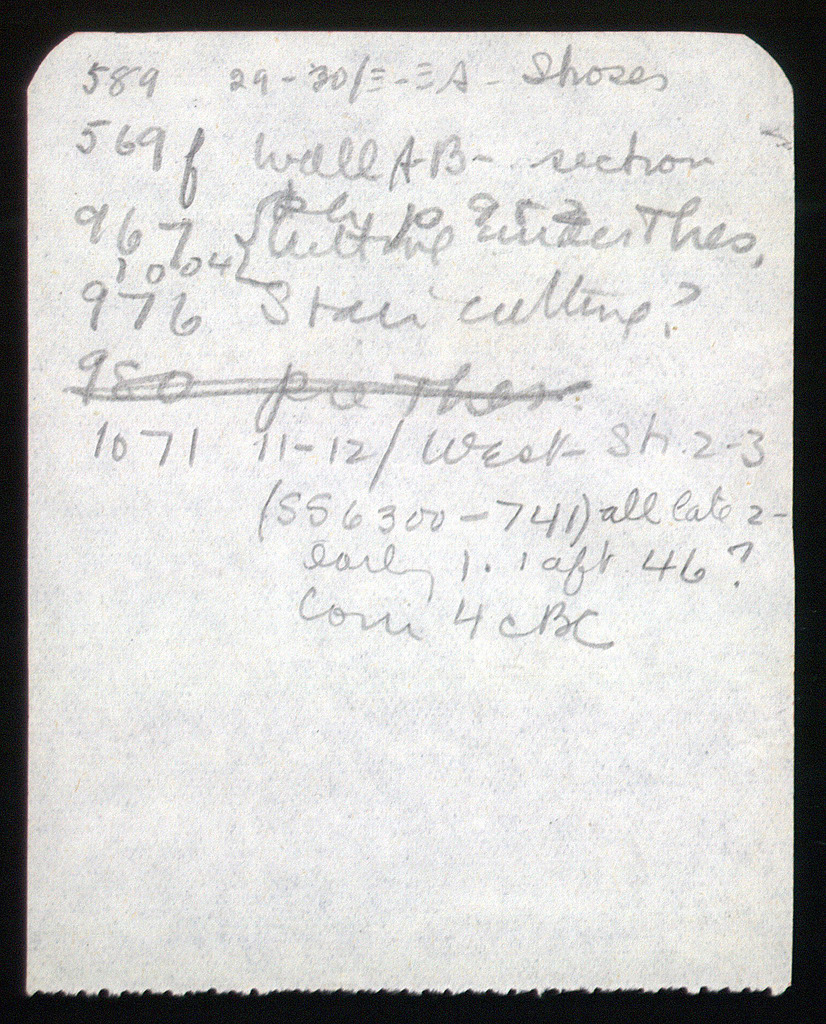 589 29-30/Ξ-ΞA - Shoses
569 f Wall AB - section
ph p 952
967 { Cutting under Thes,
1004
976 Stair cutting?
980 pre Thes.
1071 11-12/ West - Str. 2-3
(SS 6300-741) all late 2-
early 1. 1 aft 46?
Coin 4 cBC